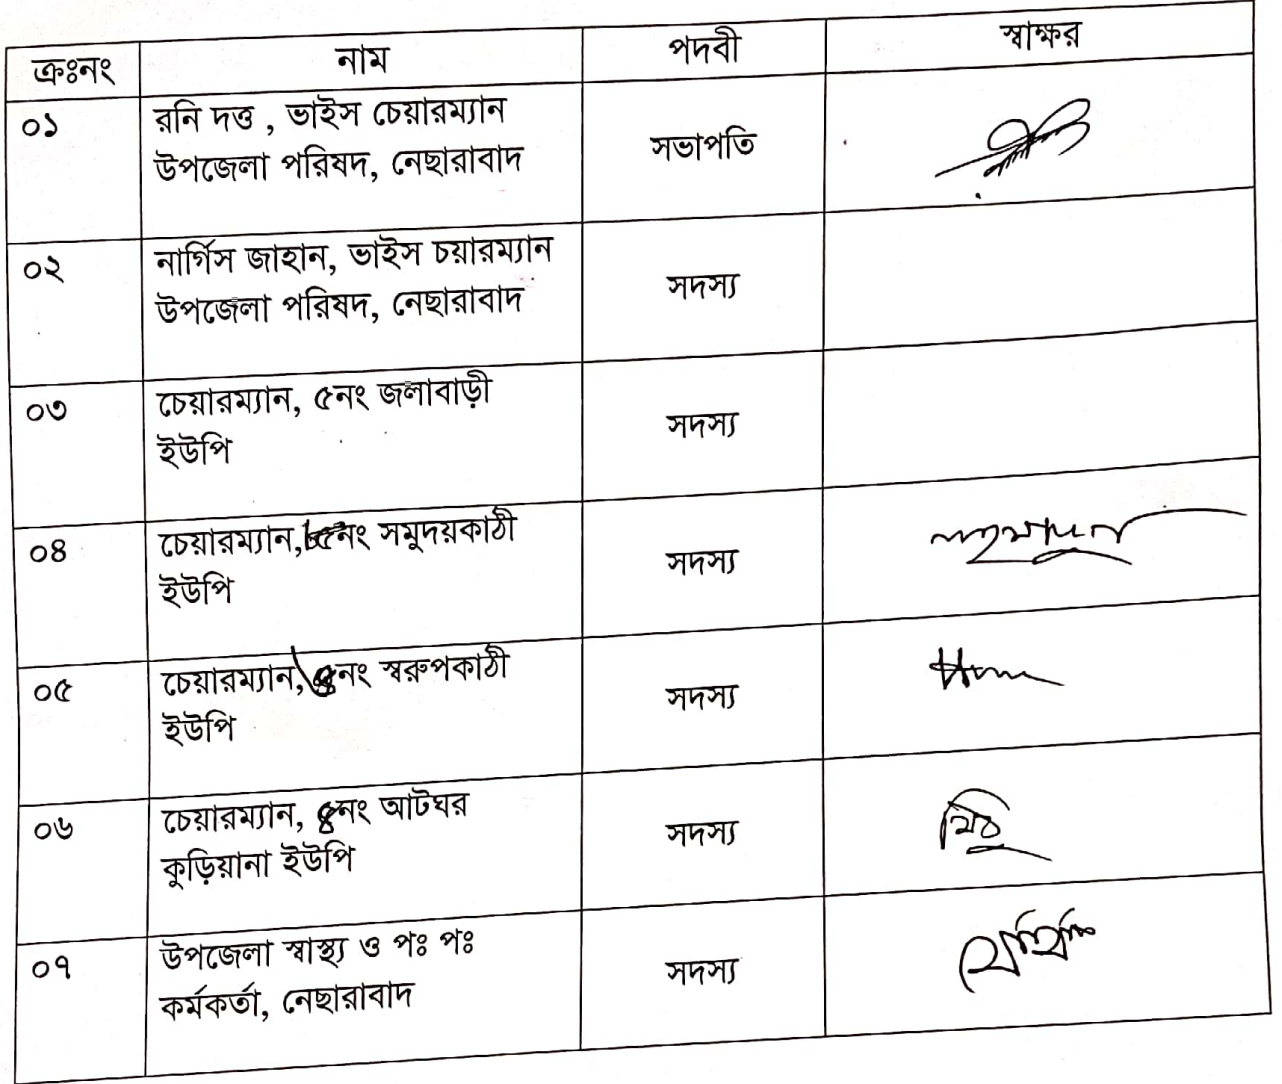 ক্রঃনং নাম পদবী স্বাক্ষর
০১ রনি দত্ত , ভাইস চেয়ারম্যান
উপজেলা পরিষদ, নেছারাবাদ সভাপতি
০২ নার্গিস জাহান, ভাইস চয়ারম্যান
উপজেলা পরিষদ, নেছারাবাদ সদস্য
০৩ চেয়ারম্যান, ৫নং জলাবাড়ী
ইউপি সদস্য
০৪ চেয়ারম্যান, নং সমুদয়কাঠী
ইউপি সদস্য
০৫ চেয়ারম্যান, নং স্বরুপকাঠী
ইউপি সদস্য
০৬ চেয়ারম্যান, নং আটঘর
কুড়িয়ানা ইউপি সদস্য
০৭ উপজেলা স্বাস্থ্য ও পঃ পঃ
কর্মকর্তা, নেছারাবাদ সদস্য